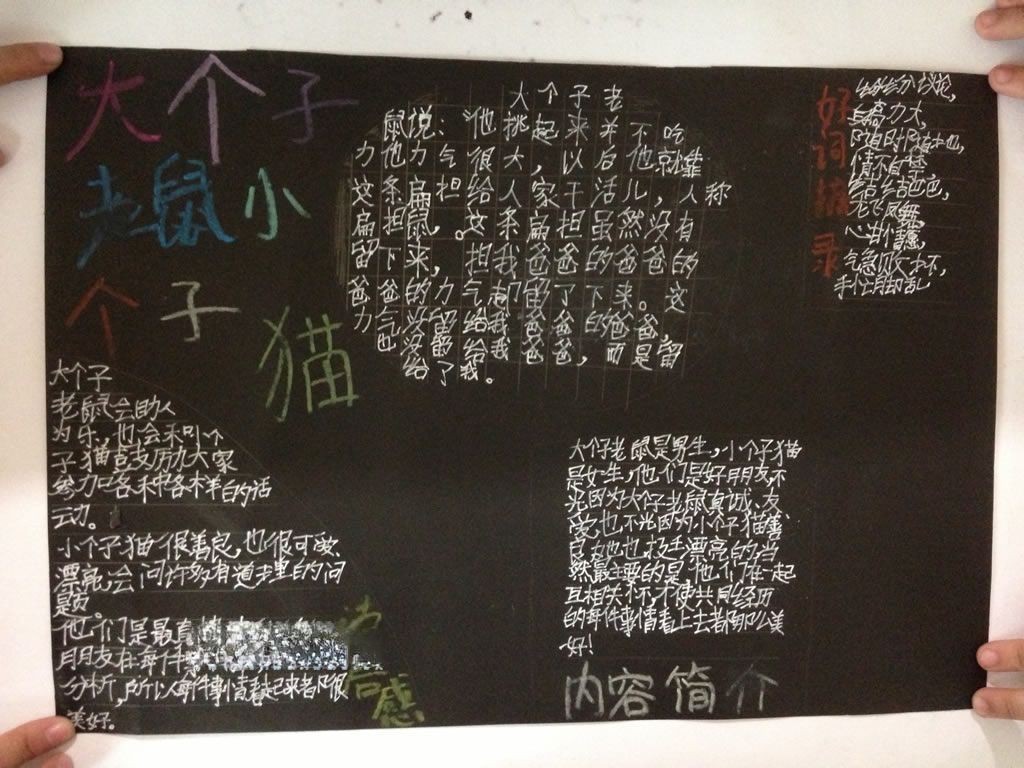 大个子
老鼠小
个子
猫
大个子老
鼠说:“他挑起来并不吃
力,他力气很大,以后他就靠
这条扁担给人家干活儿,人称
扁担鼠。这条扁担虽然没有
留下来,担我爸爸的爸爸的
爸爸的力气给我们留了下来。这
力气没留给我爸爸的爸爸,
也没留给我爸爸,而是留
给了我。
好词摘录
纷纷议论,
高力大,
随时随地,
情不自禁,
结结巴巴,
龙飞凤舞,
心甘情愿,
气急败坏,
手忙脚乱
大个子
老鼠会助人
为乐,也会和小个
子猫鼓励大家
参加各种各样的活
动。
小个子猫很善良,也很可爱、
漂亮,会问许多有道理的问
题。
他们是最真
朋友在每件
分析,所以每件事情看起来都很
美好。
感
大个子老鼠是男生,小个子猫
是女生,他们是好朋友,不
光因为大个子老鼠真诚、友
爱,也不光因为小个子猫善
良,她也挺漂亮的,当
然最主要的是,他们在一起
互相关怀,不使共同经历
的每件事情看上去都那么美
好!
内容简介